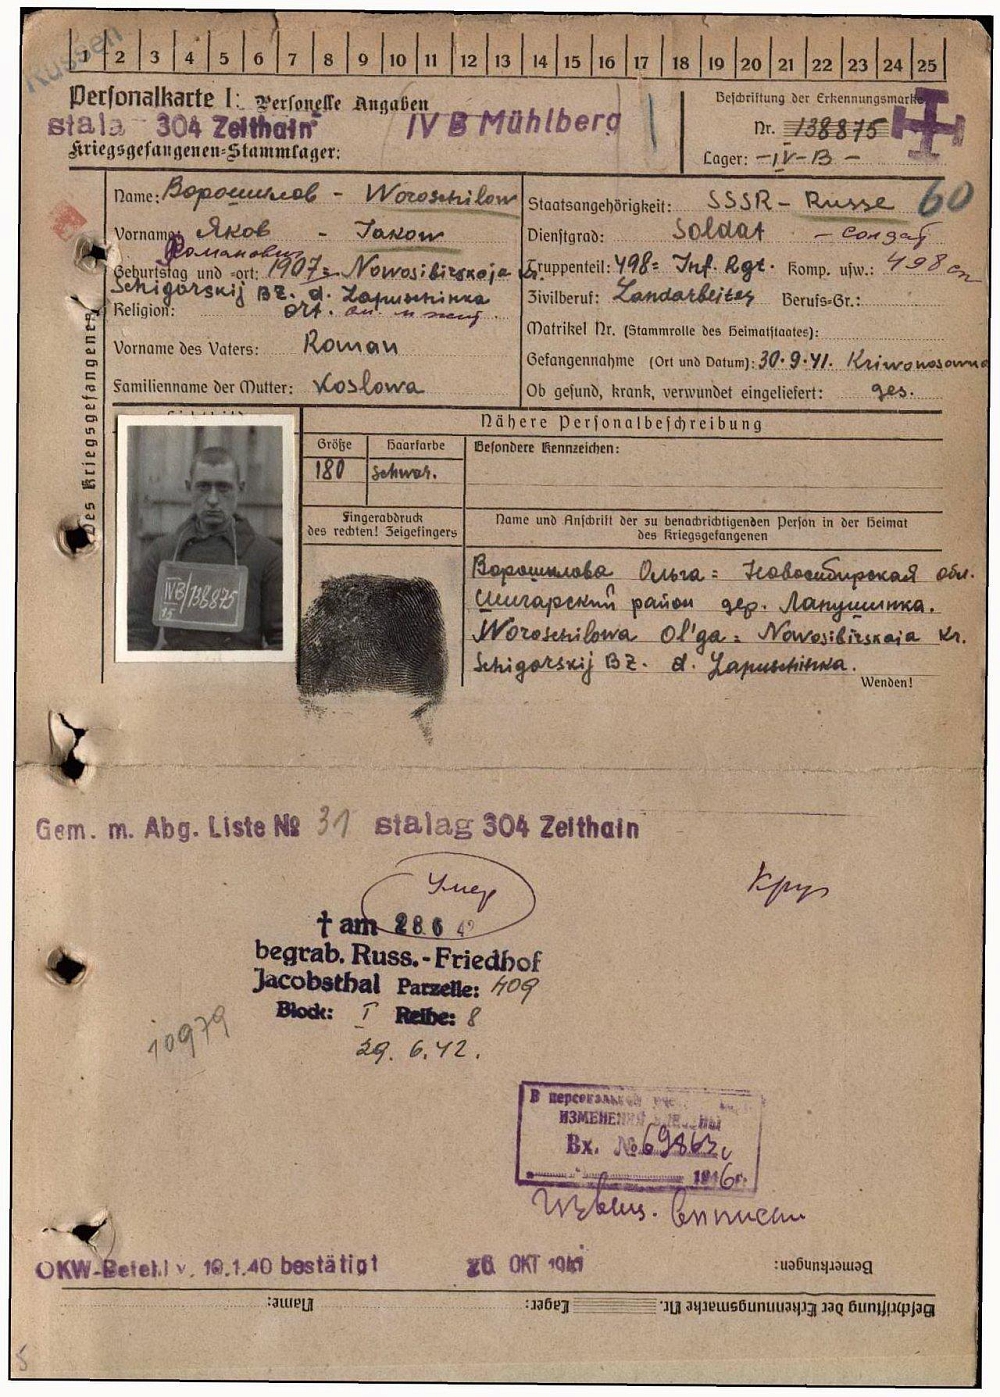 Russen
1 2 3 4 5 6 7 8 9 10 11 12 13 14 15 16 17 18 19 20 21 22 23 24 25
Personalkarte I: Personelle Angaben
Beschriftung der Erkennungsmarke
stala 304 Zeithain
IV B Mühlberg
Nr. 138875
Kriegsgefangenen-Stammlager:
Lager: -IV-B-
60
Des Kriegsgefangenen
Name: Ворошилов - Woroschilow
Vorname: Яков - Jakow
Романович
Geburtstag und -ort: 1907 = Nowosibirskaja Kr.
Schigorskij BZ. d. Lapuschinka
Religion: ort.
Vorname des Vaters: Roman
Familienname der Mutter: Koslowa
Staatsangehörigkeit: SSSR - Russe
Dienstgrad: Soldat - солдат
Truppenteil: 498= Inf. Rgt. Komp. usw.: 498 сп
Zivilberuf: Landarbeiter Berufs-Gr.:
Matrikel Nr. (Stammrolle des Heimatstaates):
Gefangennahme (Ort und Datum): 30.9.41. Kriwonosowna
Ob gesund, krank, verwundet eingeliefert: ges.
Nähere Personalbeschreibung
Größe Haarfarbe Besondere Kennzeichen:
180 schwar.
Fingerabdruck
des rechten! Zeigefingers
Name und Anschrift der zu benachrichtigenden Person in der Heimat
des Kriegsgefangenen
IVB/138875
15
Ворошилова Ольга = Новосибирская обл.
Шигарский район дер. Лапушинка.
Woroschilowa Ol'ga = Nowosibirskaja Kr.
Schigorskij BZ. d. Lapuschinka.
Wenden!
Gem. m. Abg. Liste № 31 stalag 304 Zeithain
Умер
Круг
† am 28 6 42
begrab. Russ.-Friedhof
Jacobsthal Parzelle: 409
Block: I Reihe: 8
29. 6. 42.
10979
В персональной
ИЗМЕНЕНИЯ ВНЕСЕНЫ
Вх. № 69863
1946г.
OKW-Befehl v. 19.1.40 bestätigt
26. OKT 1941
Bemerkungen:
Beschriftung der Erkennungsmarke Nr. Lager: Name:
5